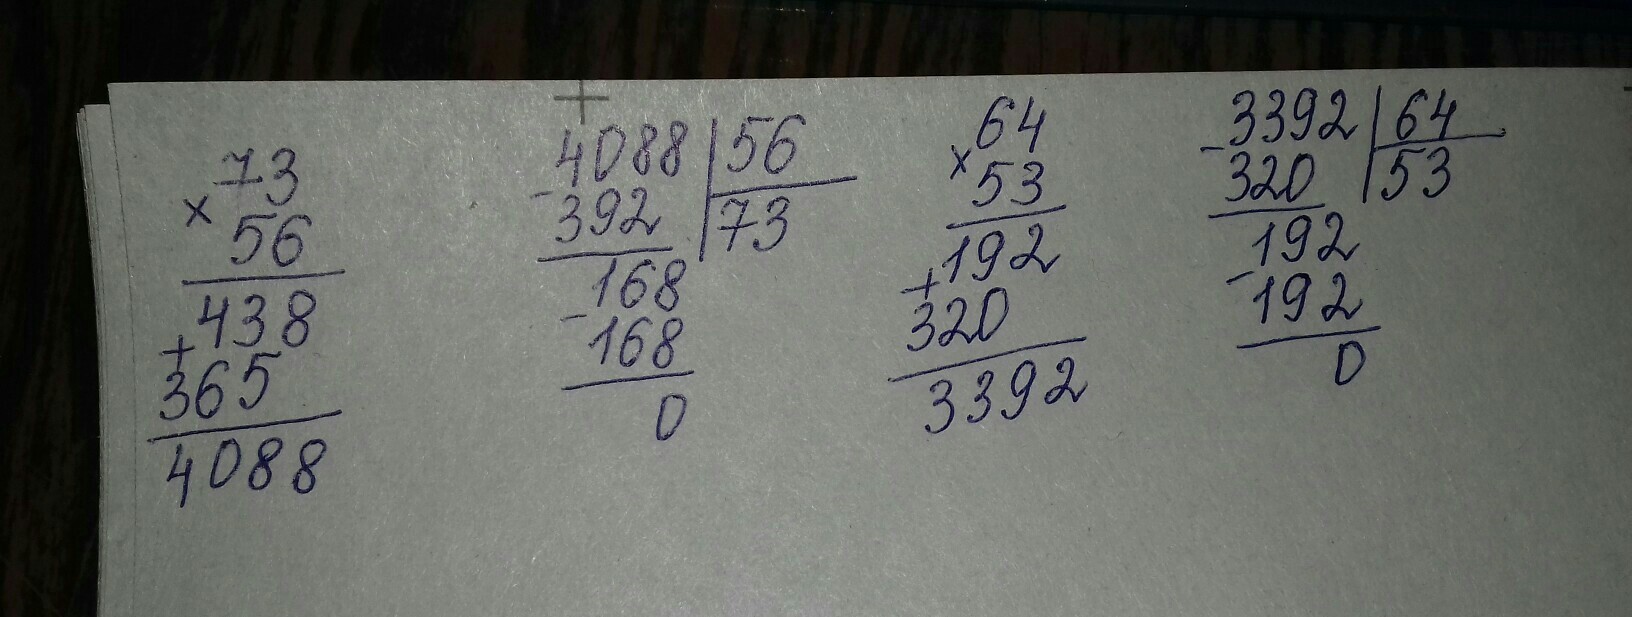 73
× 56
438
+
365
4088
4088 | 56
- 392 | 73
168
- 168
0
64
× 53
192
+
320
3392
- 3392 | 64
320 | 53
192
- 192
0